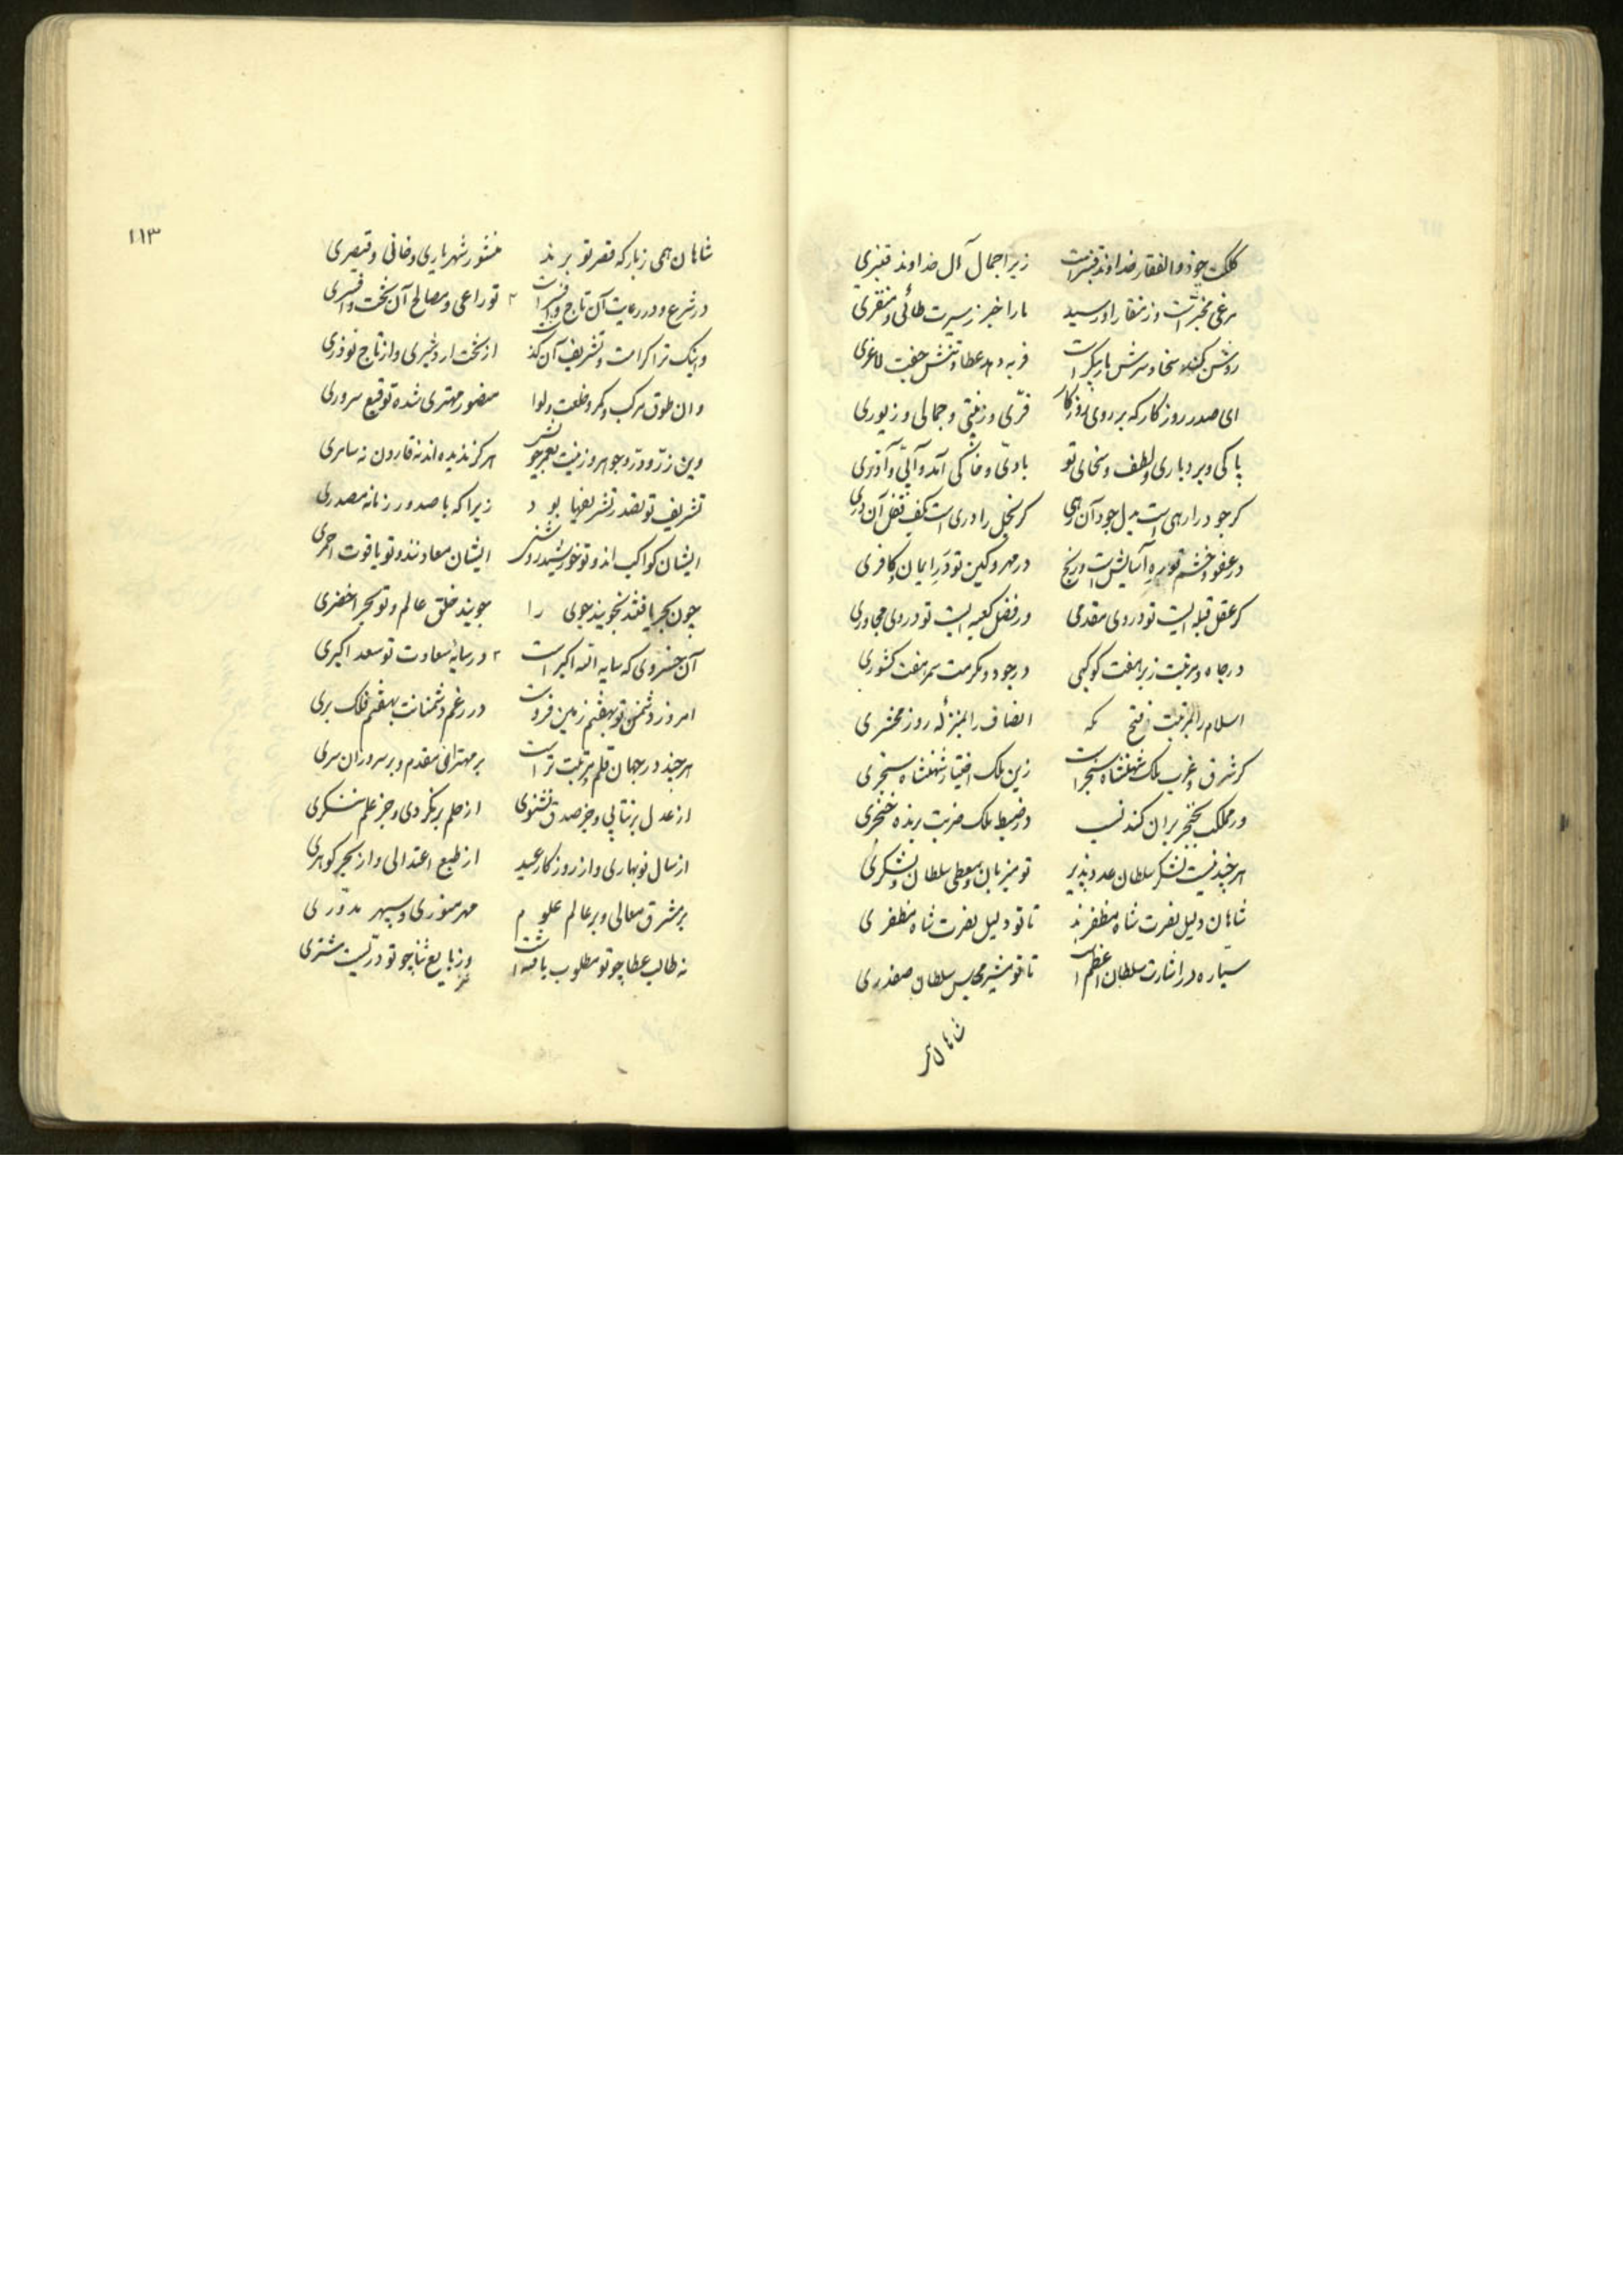 کلکت چو ذوالفقار خداوند قنبرست زیرا جمال آل خداوند قنبری
مرغی مخبرست وز منقار او رسید ما را خبر ز سیرت طائی و منقری
روشن کند سخا و سرش تاریکست فربه دهد عطا و تنش جفت لاغری
ای صدر روزگار که بر روی روزگار فرّی و زینتی و جمالی و زیوری
پاکی و بردباری و لطف و سخای تو بادی و خاکی آمد و آبی و آذری
گر جود را رهی است بدل جود آن رهی گر بخل را دری است بکف قفل آن دری
در عفو و خشم تو ره آسایش است و رنج در مهر و کین تو در ایمان و کافری
گر عقل قبله ایست تو در وی مقدمی ور فضل کعبه ایست تو در وی مجاوری
در جاه و مرتبت زبر هفت کوکبی در جود و مکرمت سمر هفت کشوری
اسلام را بمرتبت فتح مکه انصاف را بمنزله روز محشری
گر شرق و غرب ملک شهنشاه سنجرست زین ملک اختیار شهنشاه سنجری
ور مملکت بخنجر بران کند نسب در ضبط ملک ضربت برنده خنجری
هرچند نیست لشکر سلطان عدد پذیر تو میزبان و معطی سلطان و لشکری
شاهان دلیل نصرت شاه مظفرند تا تو دلیل نصرت شاه مظفری
سیّاره در اشارت سلطان اعظم است تا تو مشیر مجلس سلطان صفدری
شاهان همی
۱۱۳
شاهان همی ز بارگه قصر تو برند منشور شهریاری و خانی و قیصری
در شرع و در رعایت آن تاج و افسرست تو راعی و مصالح آن تخت و افسری
واینک ترا کرامت و تشریف آن کند از تخت اردشیری و از تاج نوذری
وان طوق مرکب و کمر و خلعت و لوا منصور مهتری شده توقیع سروری
وین زرّ و درّ و جوهر و زینت بعمر خویش هرگز ندیده اند نه قارون نه سامری
تشریف تو بقدر تشریفها بود زیرا که با صدور زمانه مصدری
ایشان کواکب اند و تو خورشید روشنی ایشان معادنند و تو یاقوت احمری
چون بحر یافتند نجویند جوی را جویند خلق عالم و تو بحر اخضری
آن خسروی که سایه الله اکبرست در سایه سعادت تو سعد اکبری
امروز دشمن تو بهفتم زمین فروست در رغم دشمنانت بهفتم فلک بری
هرچند در جهان قلم و مرتبت تراست بر مهتران مقدم و بر سروران سری
از عدل برنتابی و جز صدق نشنوی از حلم برنگردی و جز علم ننگری
از سال نوبهاری و از روزگار عید از طبع اعتدالی و از بحر گوهری
بر مشرق معالی و بر عالم علوم مهر منوری و سپهر مدوّری
نه طالب عطا چو تو مطلوب یافته است وز بایع ثنا چو تو دریست مشتری